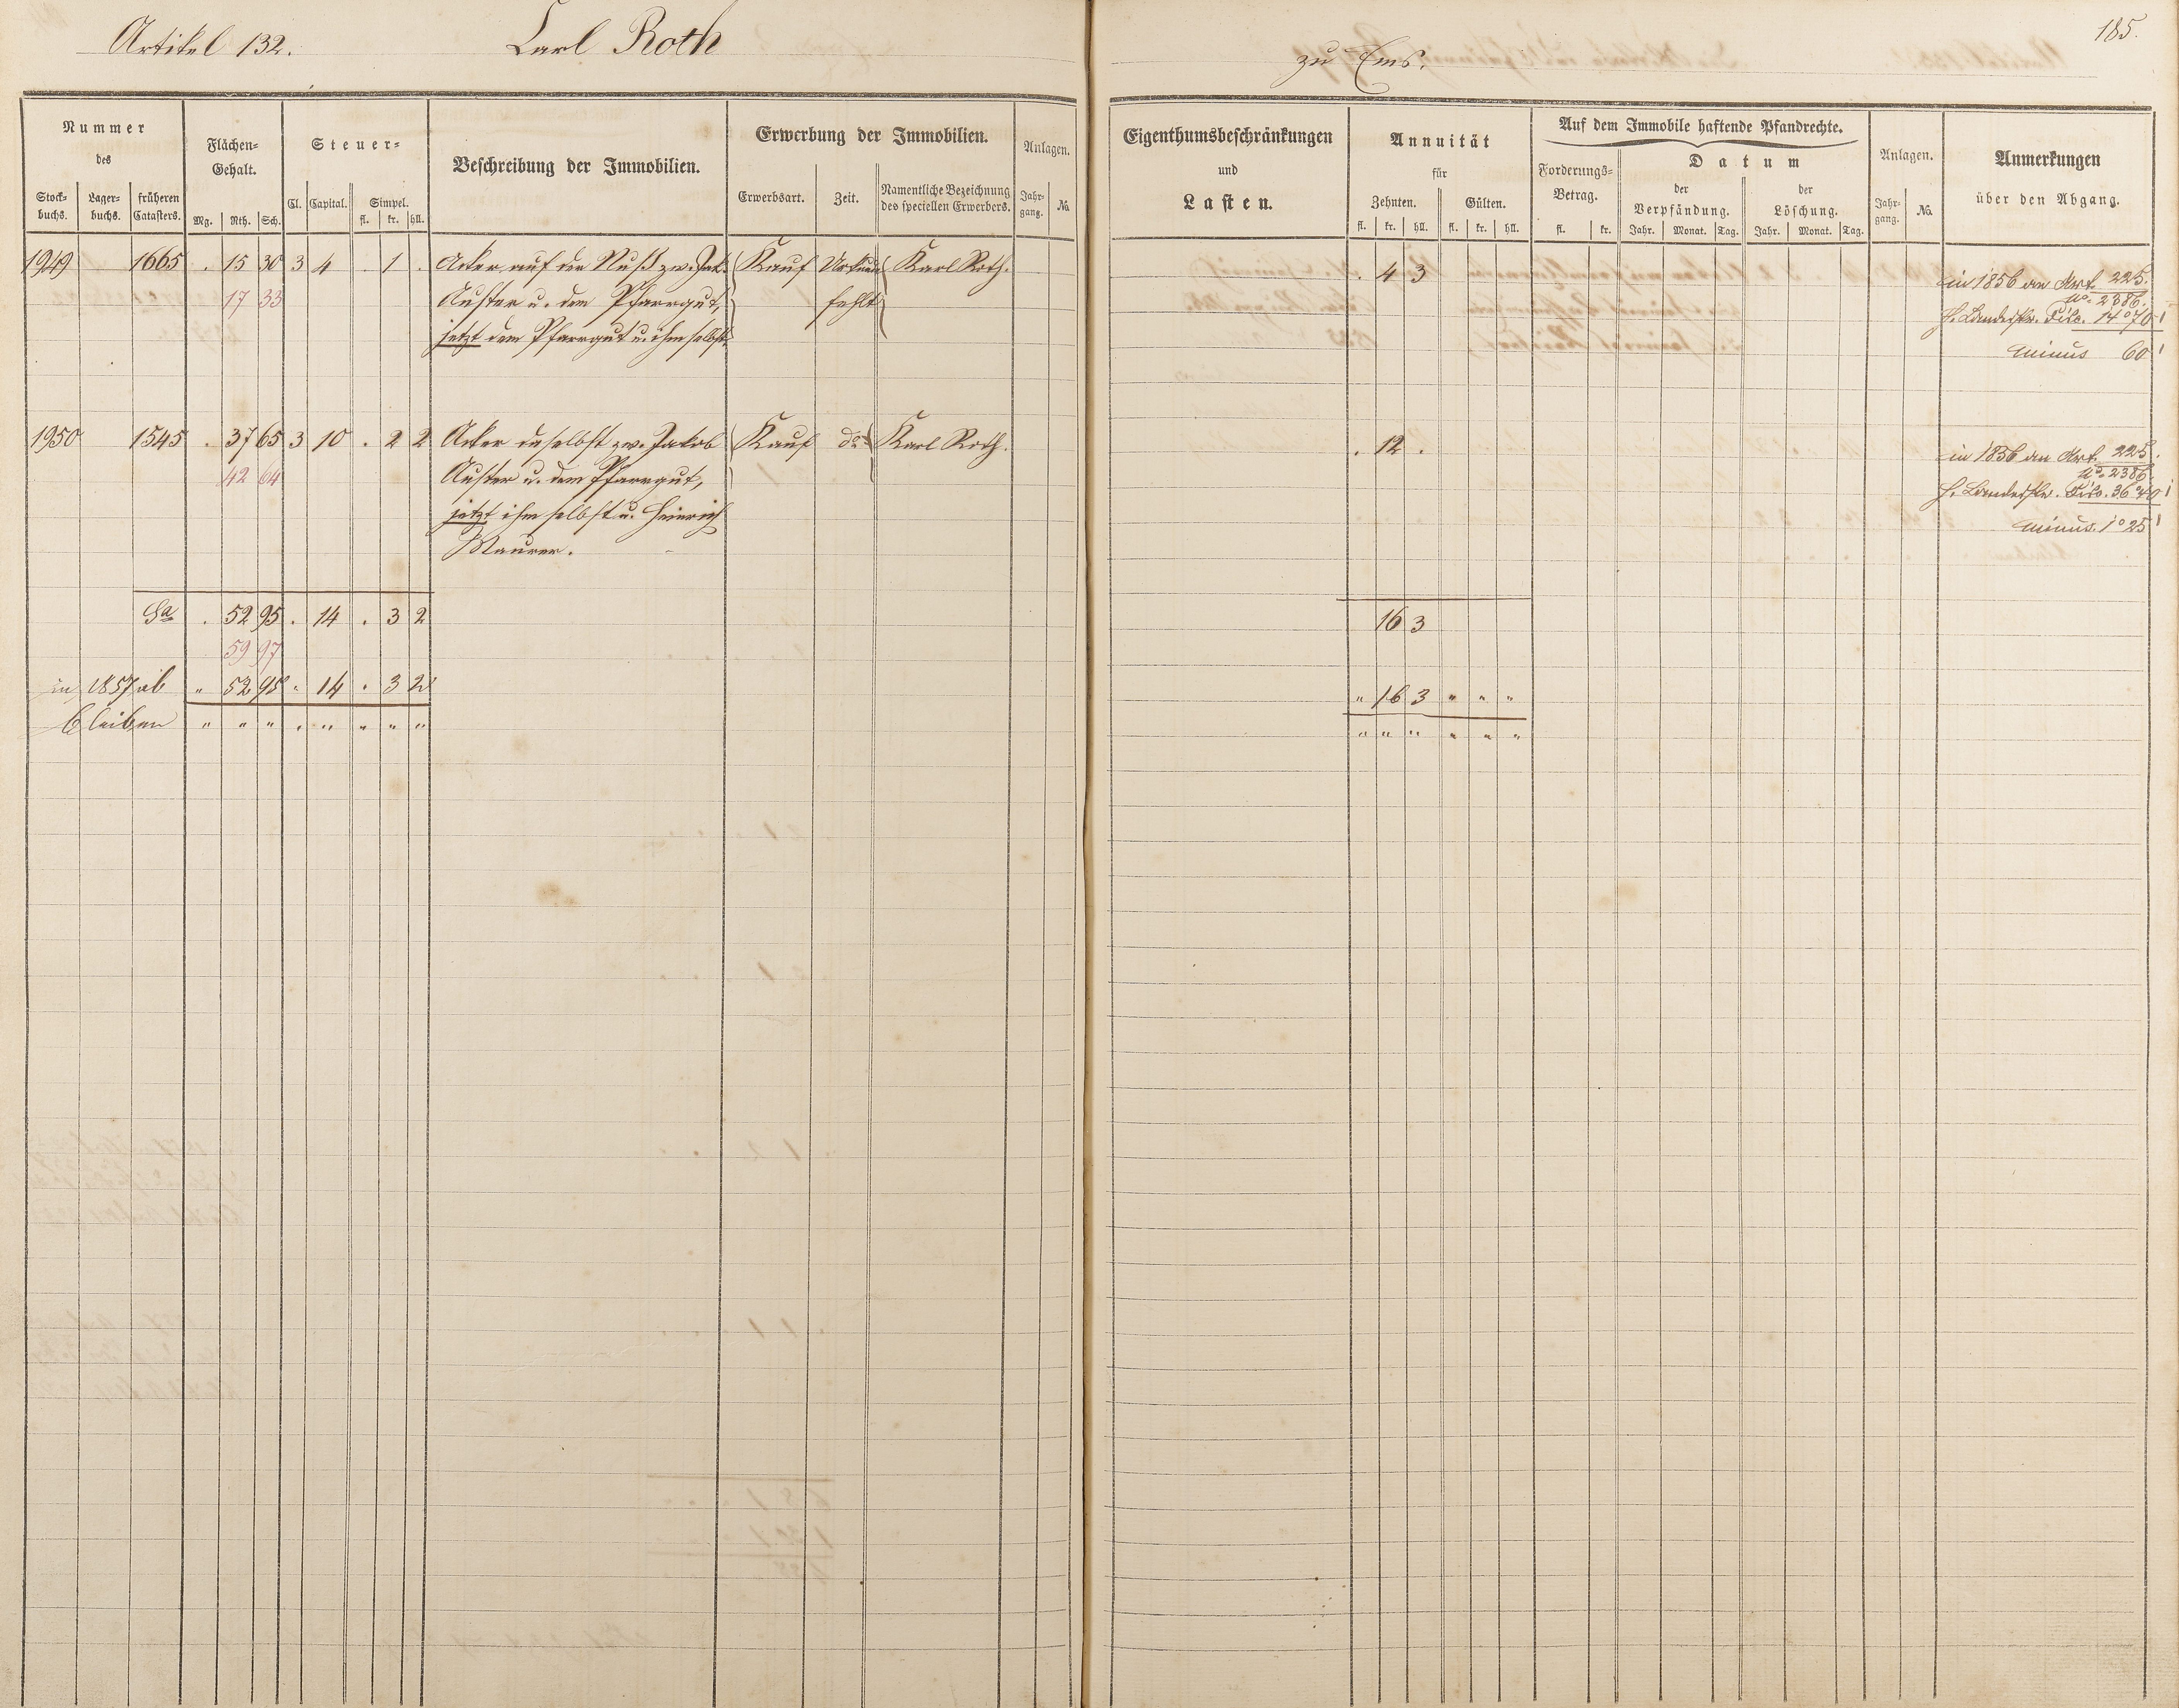 Artikel 132. Carl Roth zu Ems. 185.
Nummer des
Stock- buchs. Lager- buchs. früheren Catasters.
Flächen- Gehalt.
Mg. Rth. Sch.
Steuer-
Cl. Capital. Simpel.
fl. kr. hll.
Beschreibung der Immobilien.
Erwerbung der Immobilien.
Erwerbsart. Zeit. Namentliche Bezeichnung des speciellen Erwerbers.
Anlagen.
Jahr- gang. No.
Eigenthumsbeschränkungen
und
Lasten.
Annuität
für
Zehnten. Gülten.
fl. kr. hll. fl. kr. hll.
Auf dem Immobile haftende Pfandrechte.
Forderungs- Betrag.
fl. kr.
Datum
der Verpfändung. der Löschung.
Jahr. Monat. Tag. Jahr. Monat. Tag.
Anlagen.
Jahr- gang. No.
Anmerkungen
über den Abgang.
1949 1665 . 15 30 3 4 . 1 . Acker auf der Nuß zw. Jak. Kauf Urkunde Karl Roth. . 4 3 in 1856 an Art. 225.
17 33 Auster u. dem Pfarrgut, fehlt No. 2386.
jetzt dem Pfarrgut u. ihm selbst. 14° 70'
minus 60'
1950 1545 . 37 65 3 10 . 2 2 Acker daselbst zw. Jakob Kauf do Karl Roth. . 12 . in 1856 an Art. 225.
42 64 Auster u. dem Pfarrgut, No. 2386.
jetzt ihm selbst u. Heinrich 36° 40'
Maurer. minus. 1° 25'
Sa . 52 95 . 14 . 3 2 16 3
59 97
in 1857 ab " 52 95 " 14 . 3 2 " 16 3 " " "
bleiben " " " " " " " " " " " " " "